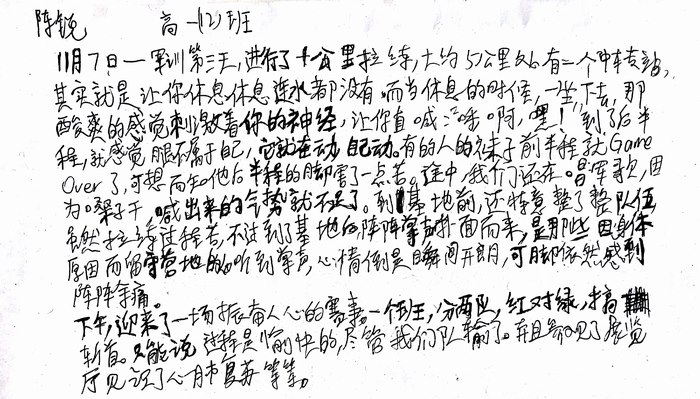 陈锐 高一(2)班
11月7日一军训第三天,进行了十公里拉练,大约5公里处有一个中转站,
其实就是让你休息休息连水都没有。而当休息的时候,一坐下去,那
酸爽的感觉刺激着你的神经,让你直喊 啊,嘿!到了后半
程,就感觉腿不属于自己,它就在动自己动。有的人的袜子前半程就Game
Over了,可想而知他后半程的脚受了一点苦。途中,我们还在唱军歌,因
为嗓子干,喊出来的气势就不足了。到基地前,还特意整了整队伍
虽然拉练过程苦,不过到了基地后阵阵掌声扑面而来,是那些因身体
原因而留守营地的,听到掌声,心情倒是瞬间开朗,可脚依然感到
阵阵余痛。
下午,迎来了一场振奋人心的赛事。一个班,分两队,红对绿,搞
斩首。只能说过程是愉快的,尽管我们队输了。并且参观了展览
厅见识了心肺复苏等等。